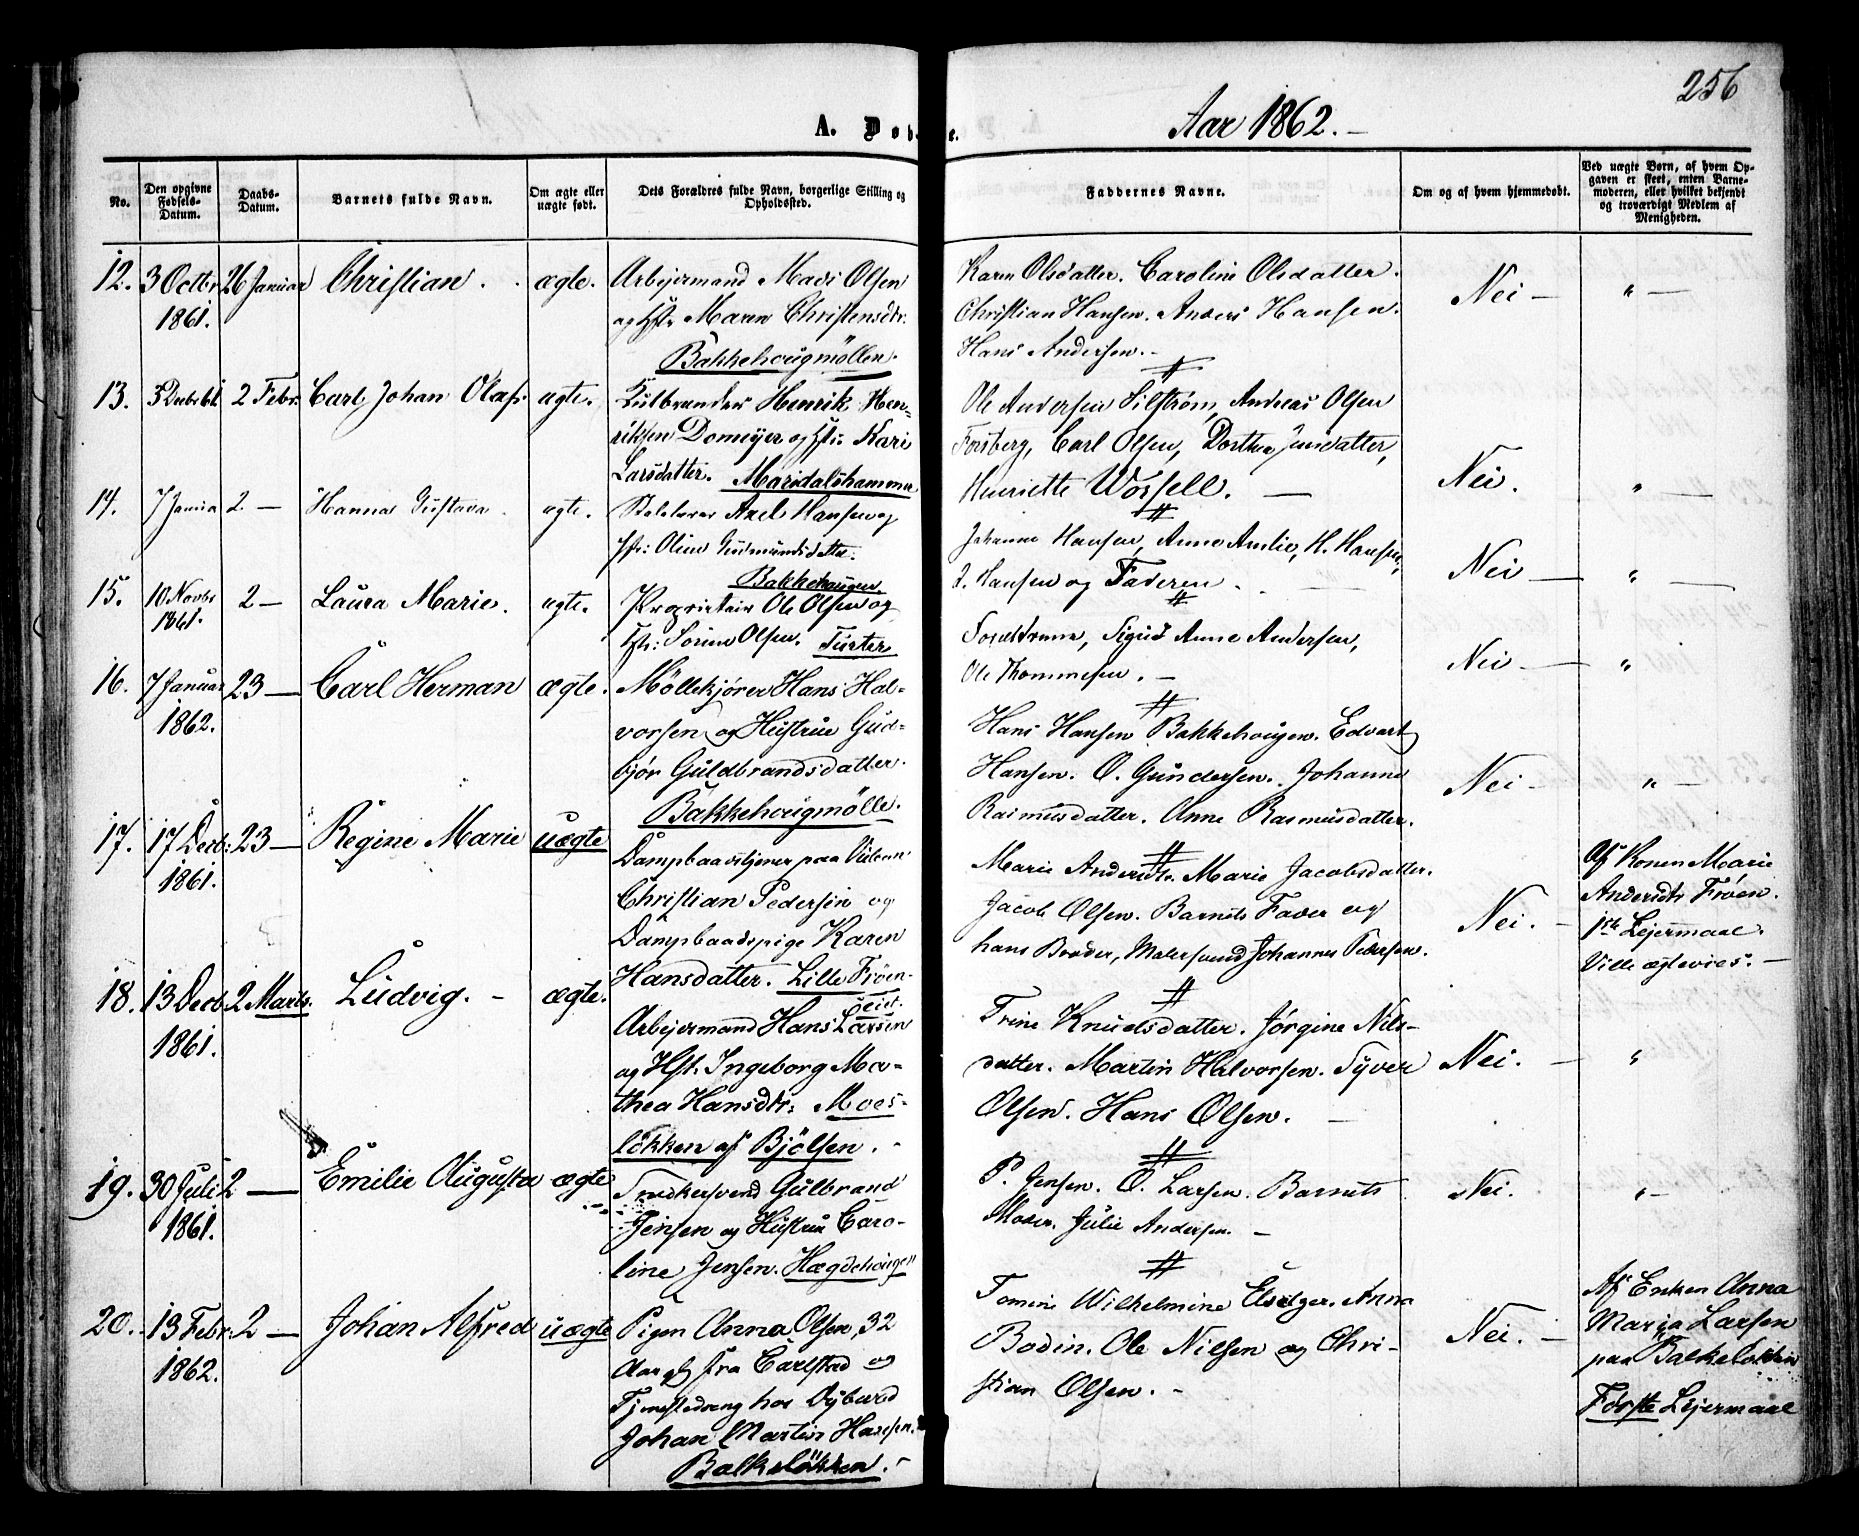 256
A. Døb
e.
Aar 1862.
No.
Den opgivne Fødsels-Datum.
Daabs-Datum.
Barnets fulde Navn.
Om ægte eller uægte født.
Dets Forældres fulde Navn, borgerlige Stilling og Opholdssted.
Faddernes Navne.
Om og af hvem hjemmedøbt.
Ved uægte Børn, af hvem Opgaven er skeet, enten Barnemoderen, eller hvilket bekjendt og troværdigt Medlem af Menigheden.
12. 3 Octbr 1861. 26 Januar Christian. ægte.
Arbejermand Mads Olsen
og Hst: Maren Christensdtr.
Bakkehougmøllen.
Karen Olsdatter. Caroline Olsdatter.
Christian Hansen. Anders Hansen.
Hans Andersen.
Nei — " —
13. 2 Febr. Carl Johan Olaf. ægte.
Henrik Hen-
riksen Domeyer og Hst: Kari
Larsdatter. Maridalshammer
Ole Andersen Silstrøm, Andreas Olsen
Forsberg, Carl Olsen, Dorthea Jensdatter,
Henriette Worfell. —
Nei. " —
14. 7 Janua 2 — Hanna Gustava. ægte.
Axel Hansen og
Hst: Oline Gudmundsdatter.
Bakkehaugen
Johanne Hansen, Anne Amlie, H. Hansen,
J. Hansen og Faderen.
Nei — " —
15. 10 Novbr 1861. 2 — Laura Marie. ægte.
Proprietair Ole Olsen og
Hst: Sorine Olsen. Turter
Sigrid Anne Andersen,
Ole Thommesen. —
Nei — "
16. 7 Januar 1862. 23 — Carl Herman ægte.
Møllekjører Hans Hal-
vorsen og Hustrue Gud-
bjør Guldbrandsdatter.
Bakkehougmølle.
Hans Hansen Bakkehougen. Edvart
Hansen. O. Gundersen. Johanne
Rasmusdatter. Anne Rasmusdatter.
Nei — " —
17. 17 Decb: 1861. 23 — Regine Marie uægte
Dampbaadstjener paa
Christian Pedersen og
Dampbaadspige Karen
Hansdatter. Lille Frøen-
eiet.
Marie Andersdtr. Marie Jacobsdatter.
Jacob Olsen. Barnets Fader og
hans Broder, Malersvend Johannes Pedersen.
Nei. —
Af Konen Marie
Andersdtr Frøen.
1ste Lejermaal.
Ville ægtevies. —
18. 13 Decb 1861. 2 Marts. Ludvig. — ægte.
Arbejermand Hans Larsen
og Hst. Ingeborg Ma-
thea Hansdtr: Moes-
løkken af Bjølsen.
Trine Knudsdatter. Jørgine Nils-
datter. Martin Halvorsen. Syver
Olsen. Hans Olsen. —
Nei. — "
19. 30 Juli 1861. 2 — Emilie Augusta ægte
Snedkersvend Gulbrand
Jensen og Hustrue Caro-
line Jensen. Hægdehougen
P. Jensen. O. Larsen. Barnets
Moder. Julie Andersen. —
Nei. " —
20. 13 Febr: 1862. 2 — Johan Alfred uægte
Pigen Anna Olsen, 32
Aar gl. fra Carlstad og
Tjenestedreng hos
Johan Martin Hansen.
Balkeløkken.
Tomine Wilhelmine Anna
Bodin. Ole Nilsen og Chri-
stian Olsen. —
Nei. —
Af Enken Anna
Maria Larsen
paa Balkeløkken
Første Lejermaal